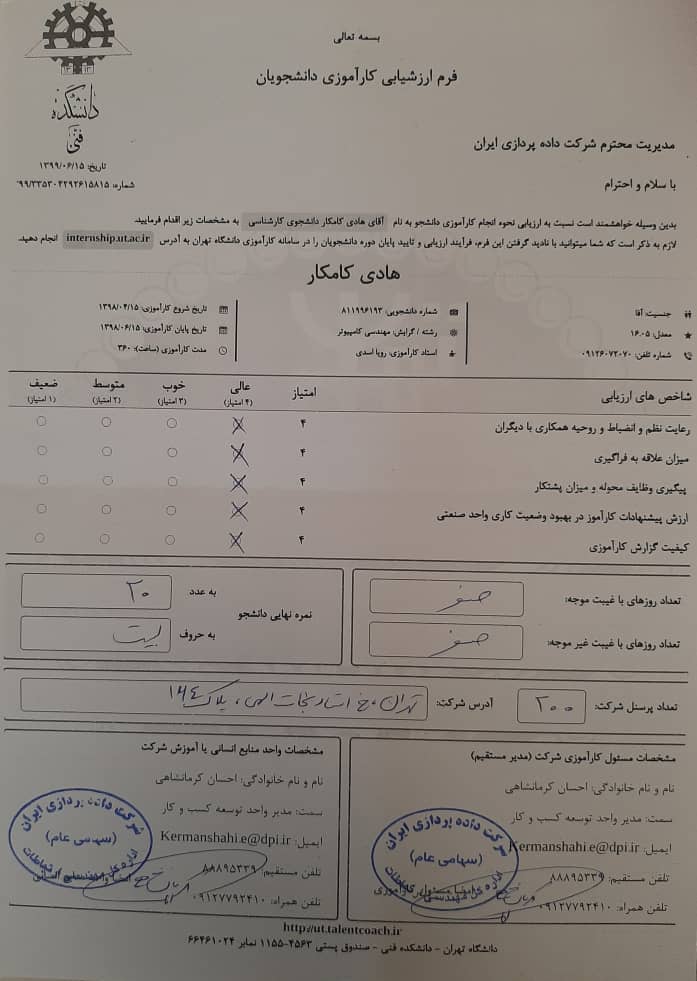 بسمه تعالی
فرم ارزشیابی کارآموزی دانشجویان
دانشکده
فنی
تاریخ: ۱۳۹۹/۰۶/۱۵
شماره: ۹۹/۳۳۵۳۰۴۲۹۲۶۱۵۸۱۵
مدیریت محترم شرکت داده پردازی ایران
با سلام و احترام
بدین وسیله خواهشمند است نسبت به ارزیابی نحوه انجام کارآموزی دانشجو به نام آقای هادی کامکار دانشجوی کارشناسی به مشخصات زیر اقدام فرمایید.
لازم به ذکر است که شما میتوانید با نادید گرفتن این فرم، فرآیند ارزیابی و تایید پایان دوره دانشجویان را در سامانه کارآموزی دانشگاه تهران به آدرس internship.ut.ac.ir انجام دهید.
هادی کامکار
جنسیت: آقا
معدل: ۱۶.۰۵
شماره تلفن: ۰۹۱۲۶۰۷۲۰۷۰
شماره دانشجویی: ۸۱۱۹۹۶۱۹۳
رشته / گرایش: مهندسی کامپیوتر
استاد کارآموزی: رویا اسدی
تاریخ شروع کارآموزی: ۱۳۹۸/۰۴/۱۵
تاریخ پایان کارآموزی: ۱۳۹۸/۰۶/۱۵
مدت کارآموزی (ساعت): ۳۶۰
شاخص های ارزیابی امتیاز عالی خوب متوسط ضعیف
(۴ امتیاز) (۳ امتیاز) (۲ امتیاز) (۱ امتیاز)
رعایت نظم و انضباط و روحیه همکاری با دیگران ۴
میزان علاقه به فراگیری ۴
پیگیری وظایف محوله و میزان پشتکار ۴
ارزش پیشنهادات کارآموز در بهبود وضعیت کاری واحد صنعتی ۴
کیفیت گزارش کارآموزی ۴
تعداد روزهای با غیبت موجه: صفر
تعداد روزهای با غیبت غیر موجه: صفر
نمره نهایی دانشجو
به عدد ۲۰
به حروف بیست
تعداد پرسنل شرکت: ۲۰۰
آدرس شرکت: تهران، خ استاد نجات الهی، پلاک ۱۴۴
مشخصات مسئول کارآموزی شرکت (مدیر مستقیم)
نام و نام خانوادگی: احسان کرمانشاهی
سمت: مدیر واحد توسعه کسب و کار
ایمیل: Kermanshahi.e@dpi.ir
تلفن مستقیم: ۸۸۸۹۵۳۳۹
تلفن همراه: ۰۹۱۲۷۷۹۲۴۱۰
شرکت داده پردازی ایران
(سهامی عام)
مشخصات واحد منابع انسانی یا آموزش شرکت
نام و نام خانوادگی: احسان کرمانشاهی
سمت: مدیر واحد توسعه کسب و کار
ایمیل: Kermanshahi.e@dpi.ir
تلفن مستقیم: ۸۸۸۹۵۳۳۹
تلفن همراه: ۰۹۱۲۷۷۹۲۴۱۰
شرکت داده پردازی ایران
(سهامی عام)
http://ut.talentcoach.ir
دانشگاه تهران - دانشکده فنی - صندوق پستی ۴۵۶۳-۱۱۵۵ نمابر ۶۶۴۶۱۰۲۴